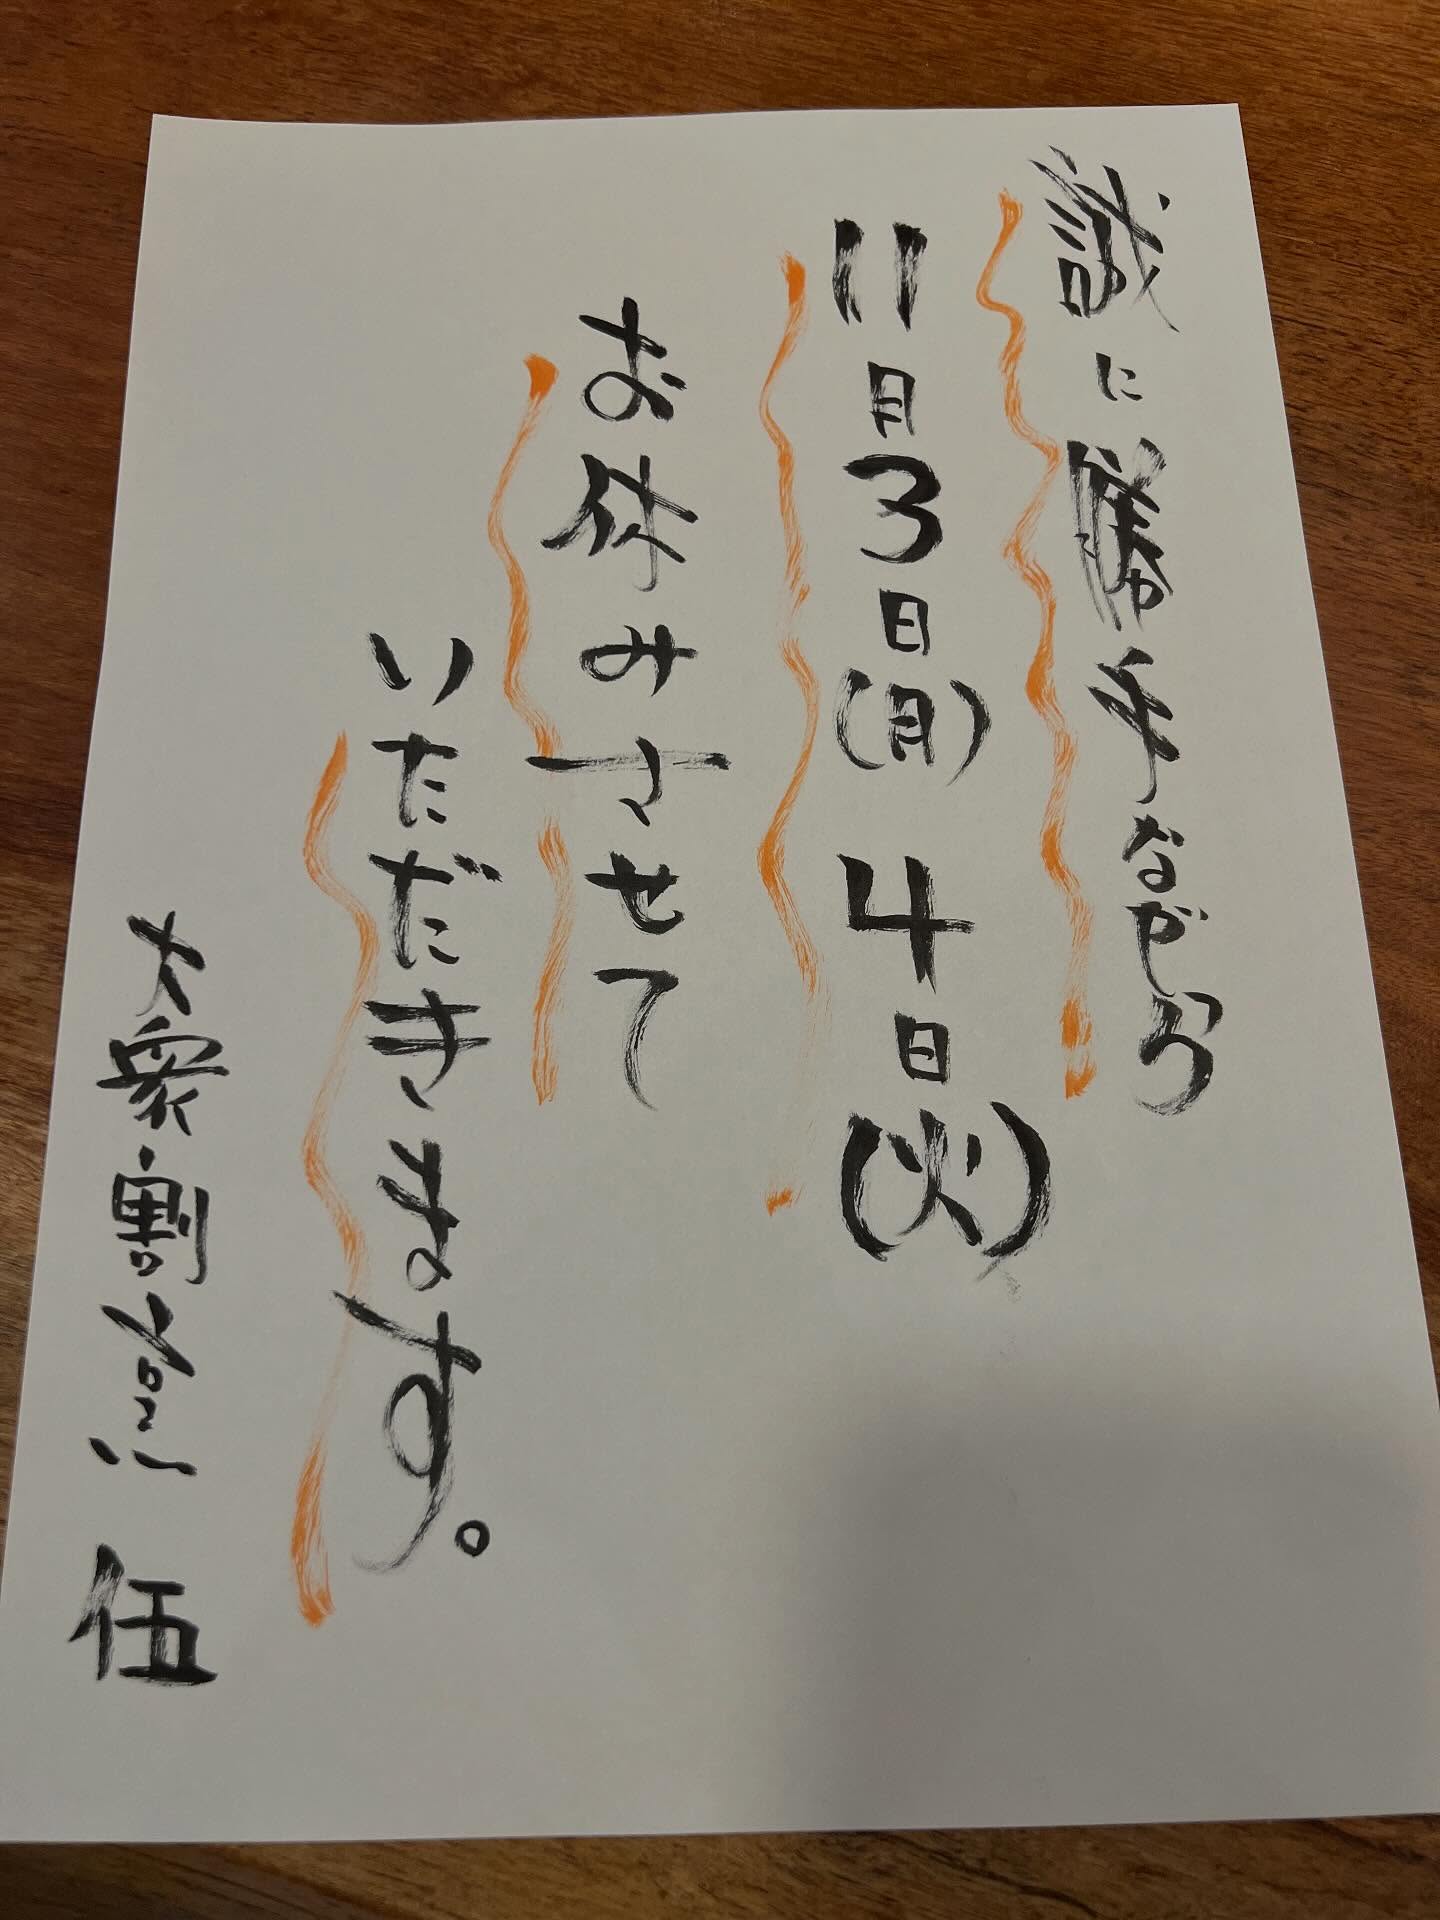 誠に勝手ながら
11月3日(月) 4日(火)
お休みさせて
いただきます。
大衆割烹 伍